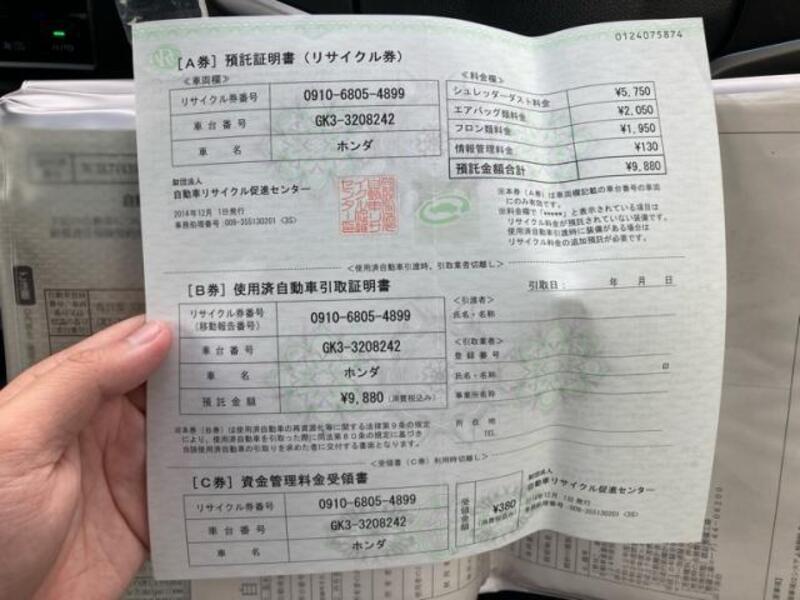 0124075874
[A券] 預託証明書 (リサイクル券)
<車両欄>
リサイクル券番号 0910-6805-4899
車台番号 GK3-3208242
車名 ホンダ
<料金欄>
シュレッダーダスト料金 ¥5,750
エアバッグ類料金 ¥2,050
フロン類料金 ¥1,950
情報管理料金 ¥130
預託金額合計 ¥9,880
財団法人
自動車リサイクル促進センター
2014年12月 1日発行
事務処理番号:009-255130201 <3S>
※本券(A券)は車両欄記載の車台番号の車両
にのみ有効です。
※料金欄で「*****」と表示されている項目は
リサイクル料金が預託されていない装備です。
使用済自動車引渡時に装備がある場合は
リサイクル料金の追加預託が必要です。
<使用済自動車引渡時、引取業者切離し>
[B券] 使用済自動車引取証明書
引取日: 年 月 日
リサイクル券番号
(移動報告番号) 0910-6805-4899
車台番号 GK3-3208242
車名 ホンダ
預託金額 ¥9,880 (消費税込み)
<引渡者>
氏名・名称
<引取業者>
登録番号
氏名・名称 印
事業所名称
所在地
TEL
※本券(B券)は使用済自動車の再資源化等に関する法律第9条の規定
により、使用済自動車を引取った際に同法第80条の規定に基づき
当該使用済自動車の引取りを求めた者に交付する書面となります。
<受領書(C券)利用時切離し>
[C券] 資金管理料金受領書
リサイクル券番号 0910-6805-4899
車台番号 GK3-3208242
車名 ホンダ
受領金額 ¥380
(消費税込み)
財団法人
自動車リサイクル促進センター
2014年12月 1日発行
事務処理番号:009-255130201 <3S>